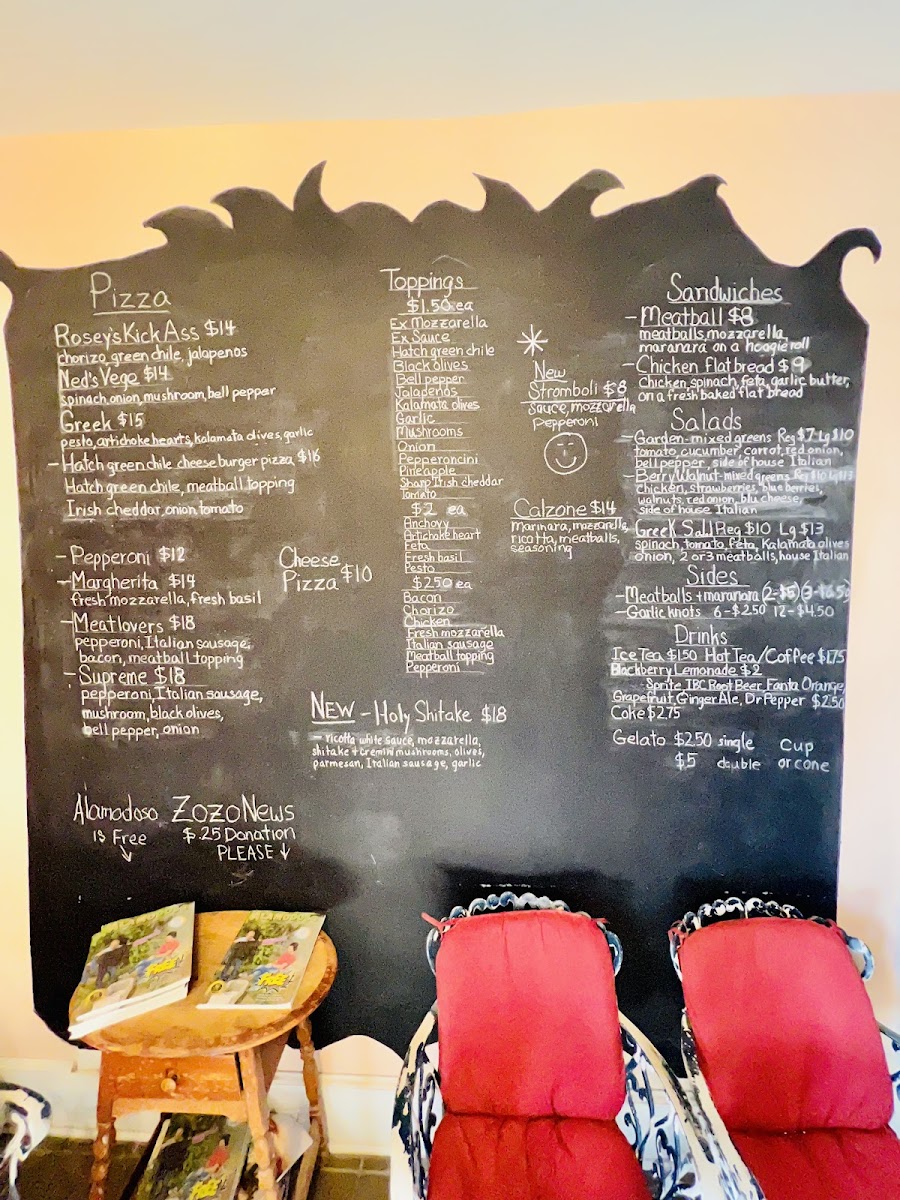 Pizza
Rosey's Kick Ass $14
chorizo, green chile, jalapenos
Ned's Vege $14
spinach, onion, mushroom, bell pepper
Greek $15
pesto, artichoke hearts, kalamata olives, garlic
- Hatch green chile cheeseburger pizza $16
Hatch green chile, meatball topping
Irish cheddar, onion, tomato
- Pepperoni $12
- Margherita $14
fresh mozzarella, fresh basil
- Meatlovers $18
pepperoni, Italian sausage,
bacon, meatball topping
- Supreme $18
pepperoni, Italian sausage,
mushroom, black olives,
bell pepper, onion
Cheese
Pizza $10
Toppings
$1.50 ea
Ex Mozzarella
Ex Sauce
Hatch green chile
Black olives
Bell pepper
Jalapenos
Kalamata olives
Garlic
Mushrooms
Onion
Pepperoncini
Pineapple
Sharp Irish cheddar
Tomato
$2 ea
Anchovy
Artichoke heart
Feta
Fresh basil
Pesto
$2.50 ea
Bacon
Chorizo
Chicken
Fresh mozzarella
Italian sausage
Meatball topping
Pepperoni
NEW - Holy Shitake $18
- ricotta white sauce, mozzarella,
shitake + cremini mushrooms, olives,
parmesan, Italian sausage, garlic
New
Stromboli $8
Sauce, mozzarella
Pepperoni
Calzone $14
marinara, mozzarella,
ricotta, meatballs,
seasoning
Sandwiches
- Meatball $8
meatballs, mozzarella
maranara on a hoagie roll
- Chicken flatbread $9
Chicken, spinach, feta, garlic butter,
on a fresh baked flat bread
Salads
- Garden-mixed greens Reg $7 Lg $10
tomato, cucumber, carrot, red onion,
bell pepper, side of house Italian
- Berry Walnut-mixed greens Reg $10 Lg $13
chicken, strawberries, blue berries,
walnuts, red onion, blu cheese,
side of house Italian
- Greek Sal Reg $10 Lg $13
spinach, tomato, feta, Kalamata olives
onion, 2 or 3 meatballs, house Italian
Sides
- Meatballs + maranara (2-$5) (3-$6.50)
- Garlic knots 6-$2.50 12-$4.50
Drinks
Ice Tea $1.50 Hot Tea/Coffee $1.75
Blackberry Lemonade $2
Sprite, IBC Root Beer, Fanta Orange,
Grapefruit, Ginger Ale, Dr Pepper $2.50
Coke $2.75
Gelato $2.50 single Cup
$5 double or cone
Alamodoso ZoZo News
is Free $.25 Donation
PLEASE